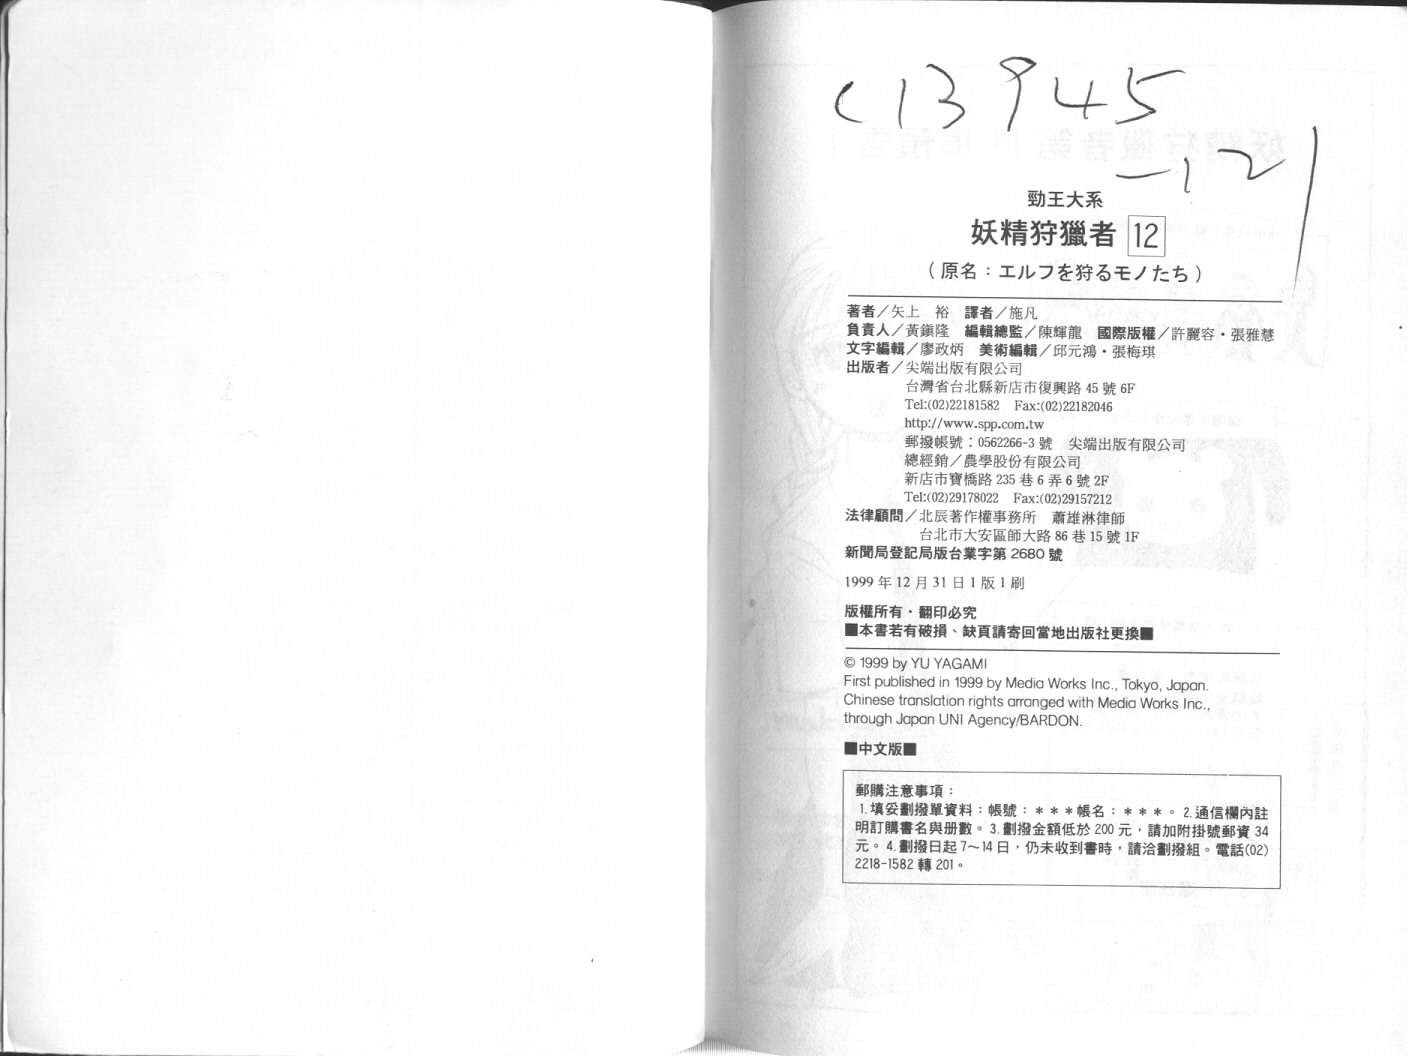 C13945
-12
勁王大系
妖精狩獵者 12
（原名：エルフを狩るモノたち）
著者／矢上　裕　譯者／施凡
負責人／黃鎮隆　編輯總監／陳輝龍　國際版權／許麗容・張雅慧
文字編輯／廖政炳　美術編輯／邱元鴻・張梅琪
出版者／尖端出版有限公司
台灣省台北縣新店市復興路 45 號 6F
Tel:(02)22181582　Fax:(02)22182046
http://www.spp.com.tw
郵撥帳號：0562266-3 號　尖端出版有限公司
總經銷／農學股份有限公司
新店市寶橋路 235 巷 6 弄 6 號 2F
Tel:(02)29178022　Fax:(02)29157212
法律顧問／北辰著作權事務所　蕭雄淋律師
台北市大安區師大路 86 巷 15 號 1F
新聞局登記局版台業字第 2680 號
1999 年 12 月 31 日 1 版 1 刷
版權所有・翻印必究
■本書若有破損、缺頁請寄回當地出版社更換■
© 1999 by YU YAGAMI
First published in 1999 by Media Works Inc., Tokyo, Japan.
Chinese translation rights arranged with Media Works Inc.,
through Japan UNI Agency/BARDON.
■中文版■
郵購注意事項：
1.填妥劃撥單資料：帳號：＊＊＊帳名：＊＊＊。2.通信欄內註
明訂購書名與册數。3.劃撥金額低於 200 元，請加附掛號郵資 34
元。4.劃撥日起 7～14 日，仍未收到書時，請洽劃撥組。電話(02)
2218-1582 轉 201。